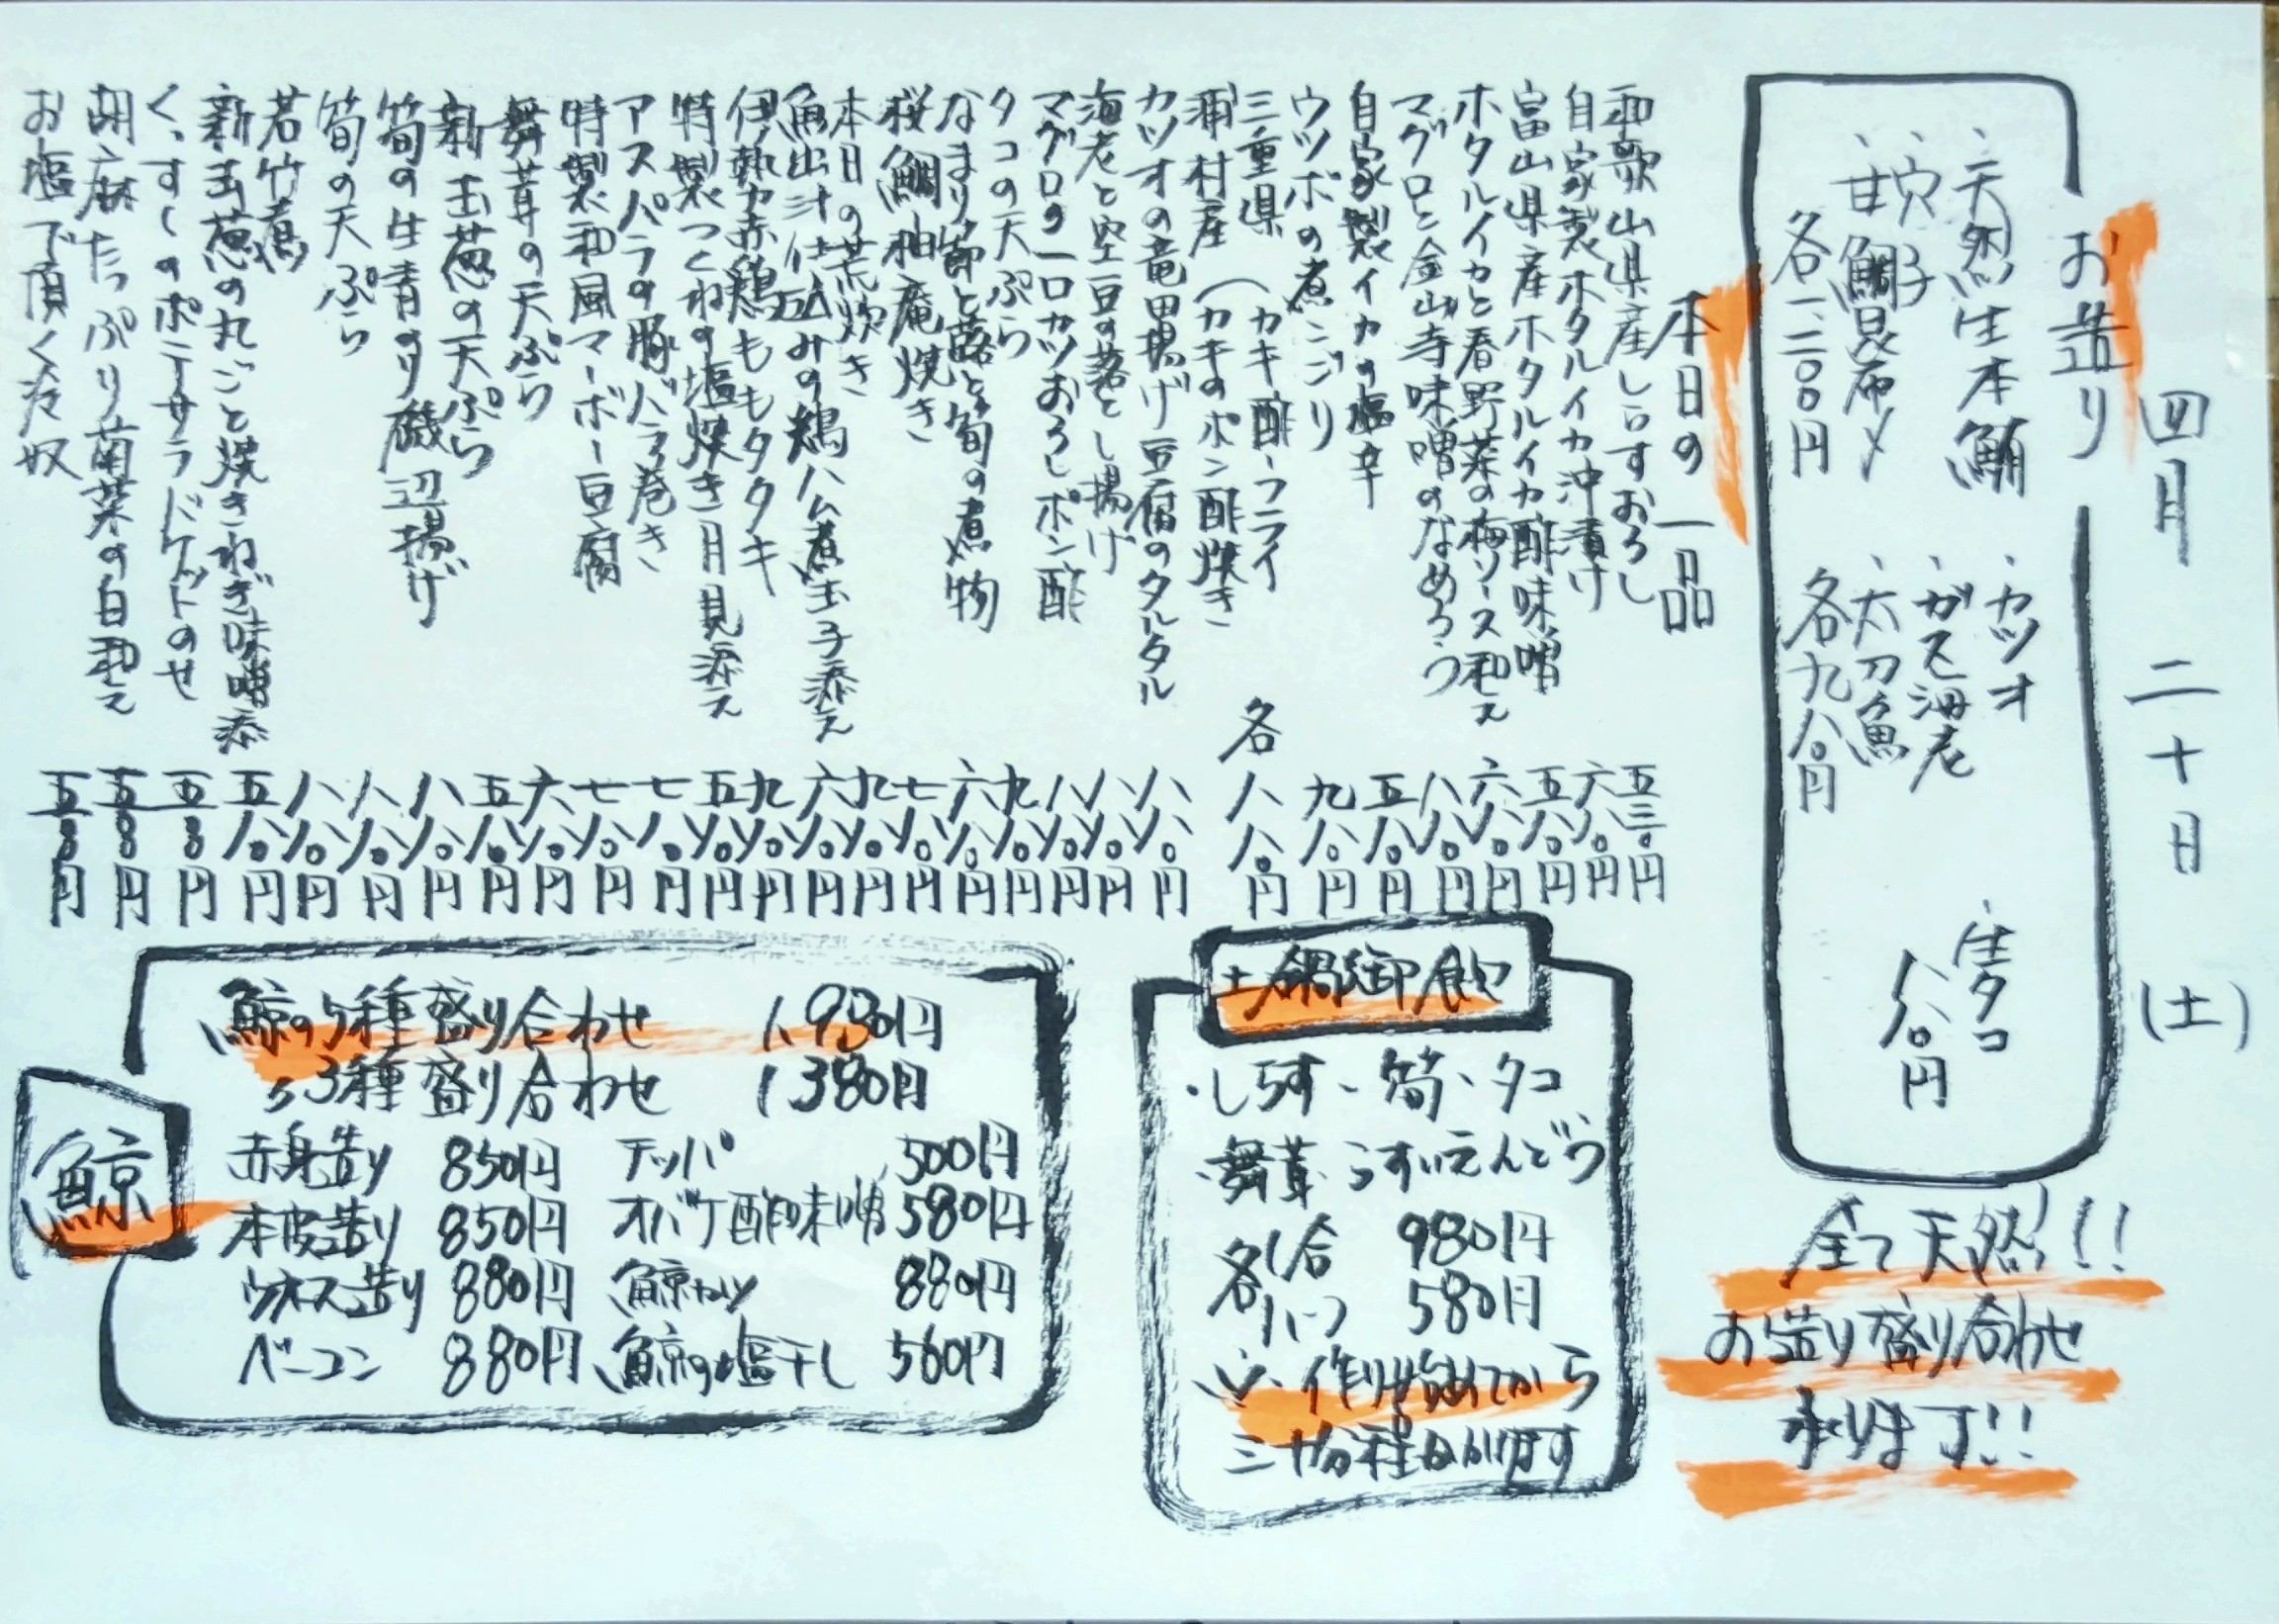 四月 二十日 (土)
お造り
・天然生本鮪
・穴子
・甘鯛昆布〆
各一、二〇〇円
・カツオ
・ガス海老
・太刀魚
各九八〇円
・生タコ
八八〇円
全て天然!!
お造り盛り合わせ
承ります!!
本日の一品
和歌山県産しらすおろし 五三〇円
自家製ホタルイカ沖漬け 六八〇円
富山県産ホタルイカ酢味噌 五八〇円
ホタルイカと春野菜の梅ソース和え 六八〇円
マグロと金山寺味噌のなめろう 八八〇円
自家製イカの塩辛 五八〇円
ウツボの煮こごり 九八〇円
三重県 (カキ酢・フライ
浦村産 (カキのポン酢焼き 各八八〇円
カツオの竜田揚げ豆腐のタルタル 八八〇円
海老と空豆の落とし揚げ 八八〇円
マグロの一口カツおろしポン酢 八八〇円
タコの天ぷら 九八〇円
なまり節と蕗と筍の煮物 六八〇円
桜鯛柚庵焼き 七八〇円
本日の荒炊き 九八〇円
魚出汁仕込みの鶏ハム煮玉子添え 六八〇円
伊勢赤鶏ももタタキ 九八〇円
特製つくねの塩焼き月見添え 五八〇円
アスパラの豚バラ巻き 七八〇円
特製和風マーボー豆腐 七八〇円
舞茸の天ぷら 六八〇円
新玉葱の天ぷら 五八〇円
筍の生青のり磯辺揚げ 八八〇円
筍の天ぷら 八八〇円
若竹煮 八八〇円
新玉葱の丸ごと焼きねぎ味噌添 五八〇円
くっすしのポテサラドケットのせ 五八〇円
胡麻たっぷり菊菜の白和え 五八〇円
お塩で頂く冷奴 五八〇円
土鍋御飯
・しらす・筍・タコ
・舞茸・うすいえんどう
各1合 980円
各ハーフ 580円
※作り始めてから
三十分程かかります
鯨
鯨の5種盛り合わせ 1,930円
〃3種盛り合わせ 1,380円
赤身造り 850円 テッパ 500円
本皮造り 850円 オバケ酢味噌 580円
ウネス造り 880円 鯨カツ 880円
ベーコン 880円 鯨の塩干し 560円